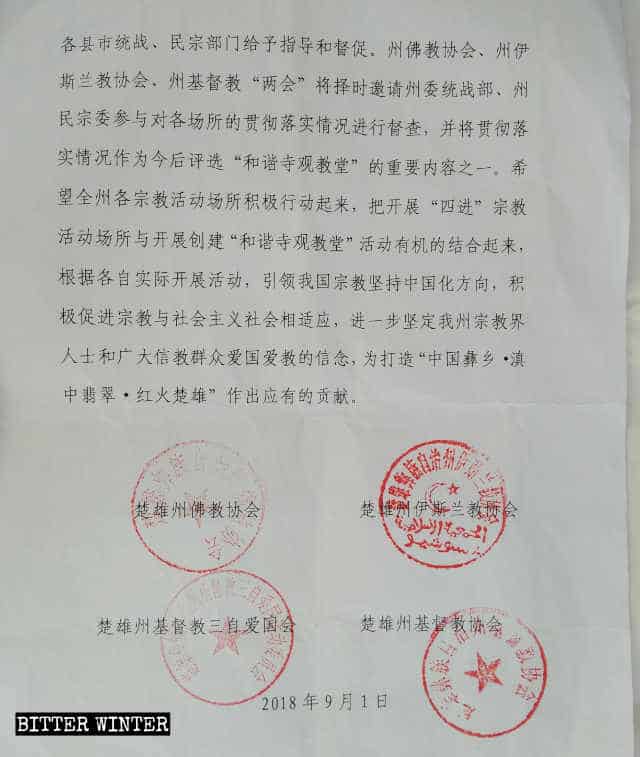 各县市统战、民宗部门给予指导和督促。州佛教协会、州伊
斯兰教协会、州基督教“两会”将择时邀请州委统战部、州
民宗委参与对各场所的贯彻落实情况进行督查，并将贯彻落
实情况作为今后评选“和谐寺观教堂”的重要内容之一。希
望全州各宗教活动场所积极行动起来，把开展“四进”宗教
活动场所与开展创建“和谐寺观教堂”活动有机的结合起来，
根据各自实际开展活动，引领我国宗教坚持中国化方向，积
极促进宗教与社会主义社会相适应，进一步坚定我州宗教界
人士和广大信教群众爱国爱教的信念，为打造“中国彝乡·滇
中翡翠·红火楚雄”作出应有的贡献。
楚雄州佛教协会
楚雄州伊斯兰教协会
楚雄州基督教三自爱国会
楚雄州基督教协会
2018年9月1日
BITTER WINTER